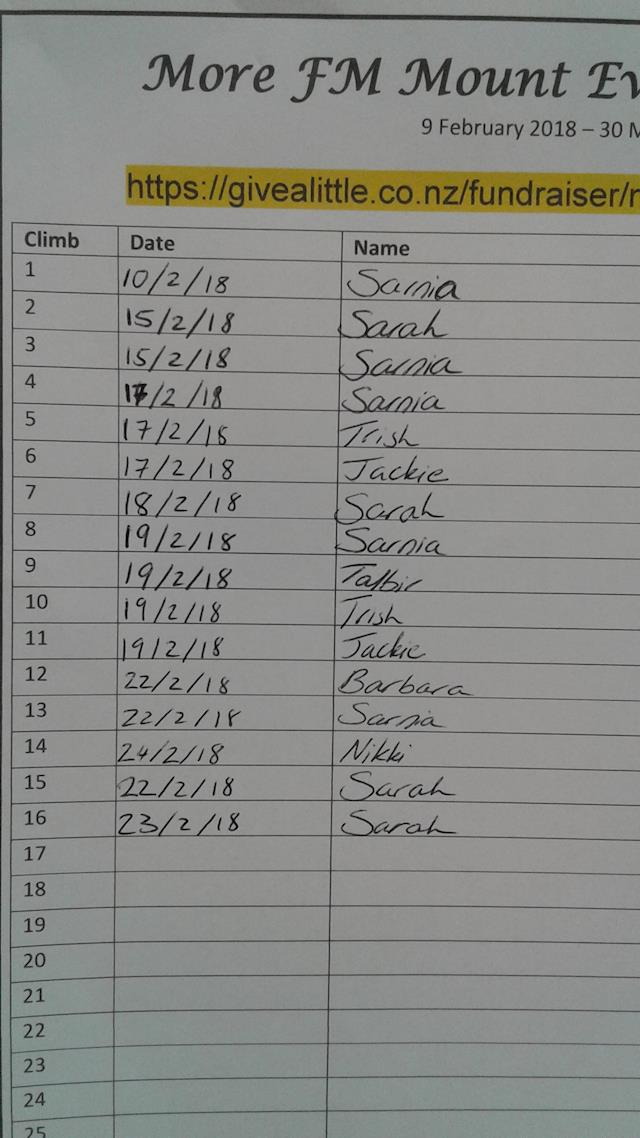 More FM Mount Ev
9 February 2018 – 30 M
https://givealittle.co.nz/fundraiser/r
Climb Date Name
1 10/2/18 Sarnia
2 15/2/18 Sarah
3 15/2/18 Sarnia
4 17/2/18 Sarnia
5 17/2/18 Trish
6 17/2/18 Jackie
7 18/2/18 Sarah
8 19/2/18 Sarnia
9 19/2/18
10 19/2/18 Trish
11 19/2/18 Jackie
12 22/2/18 Barbara
13 22/2/18 Sarnia
14 24/2/18 Nikki
15 22/2/18 Sarah
16 23/2/18 Sarah
17
18
19
20
21
22
23
24
25